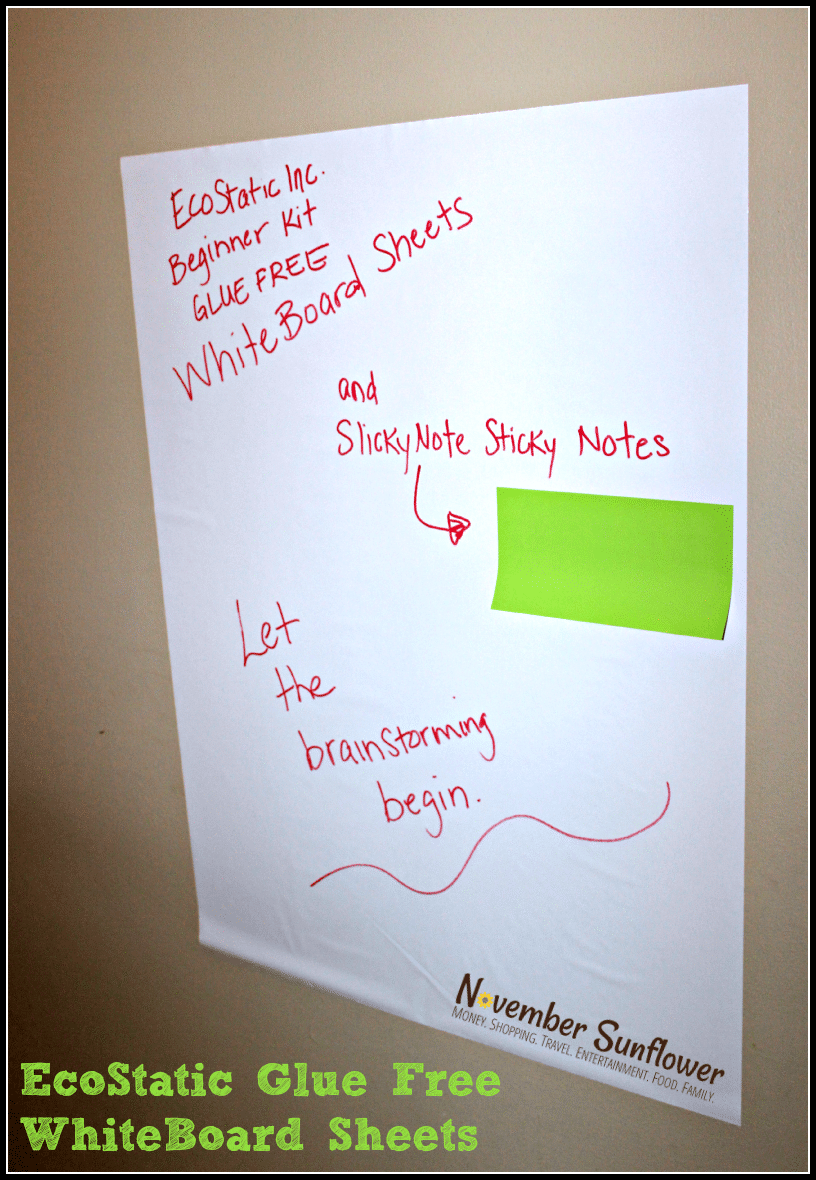 EcoStatic Inc.
Beginner Kit
GLUE FREE
WhiteBoard Sheets
and
SlickyNote Sticky Notes
Let
the
brainstorming
begin.
November Sunflower
Money. Shopping. Travel. Entertainment. Food. Family.
EcoStatic Glue Free
WhiteBoard Sheets